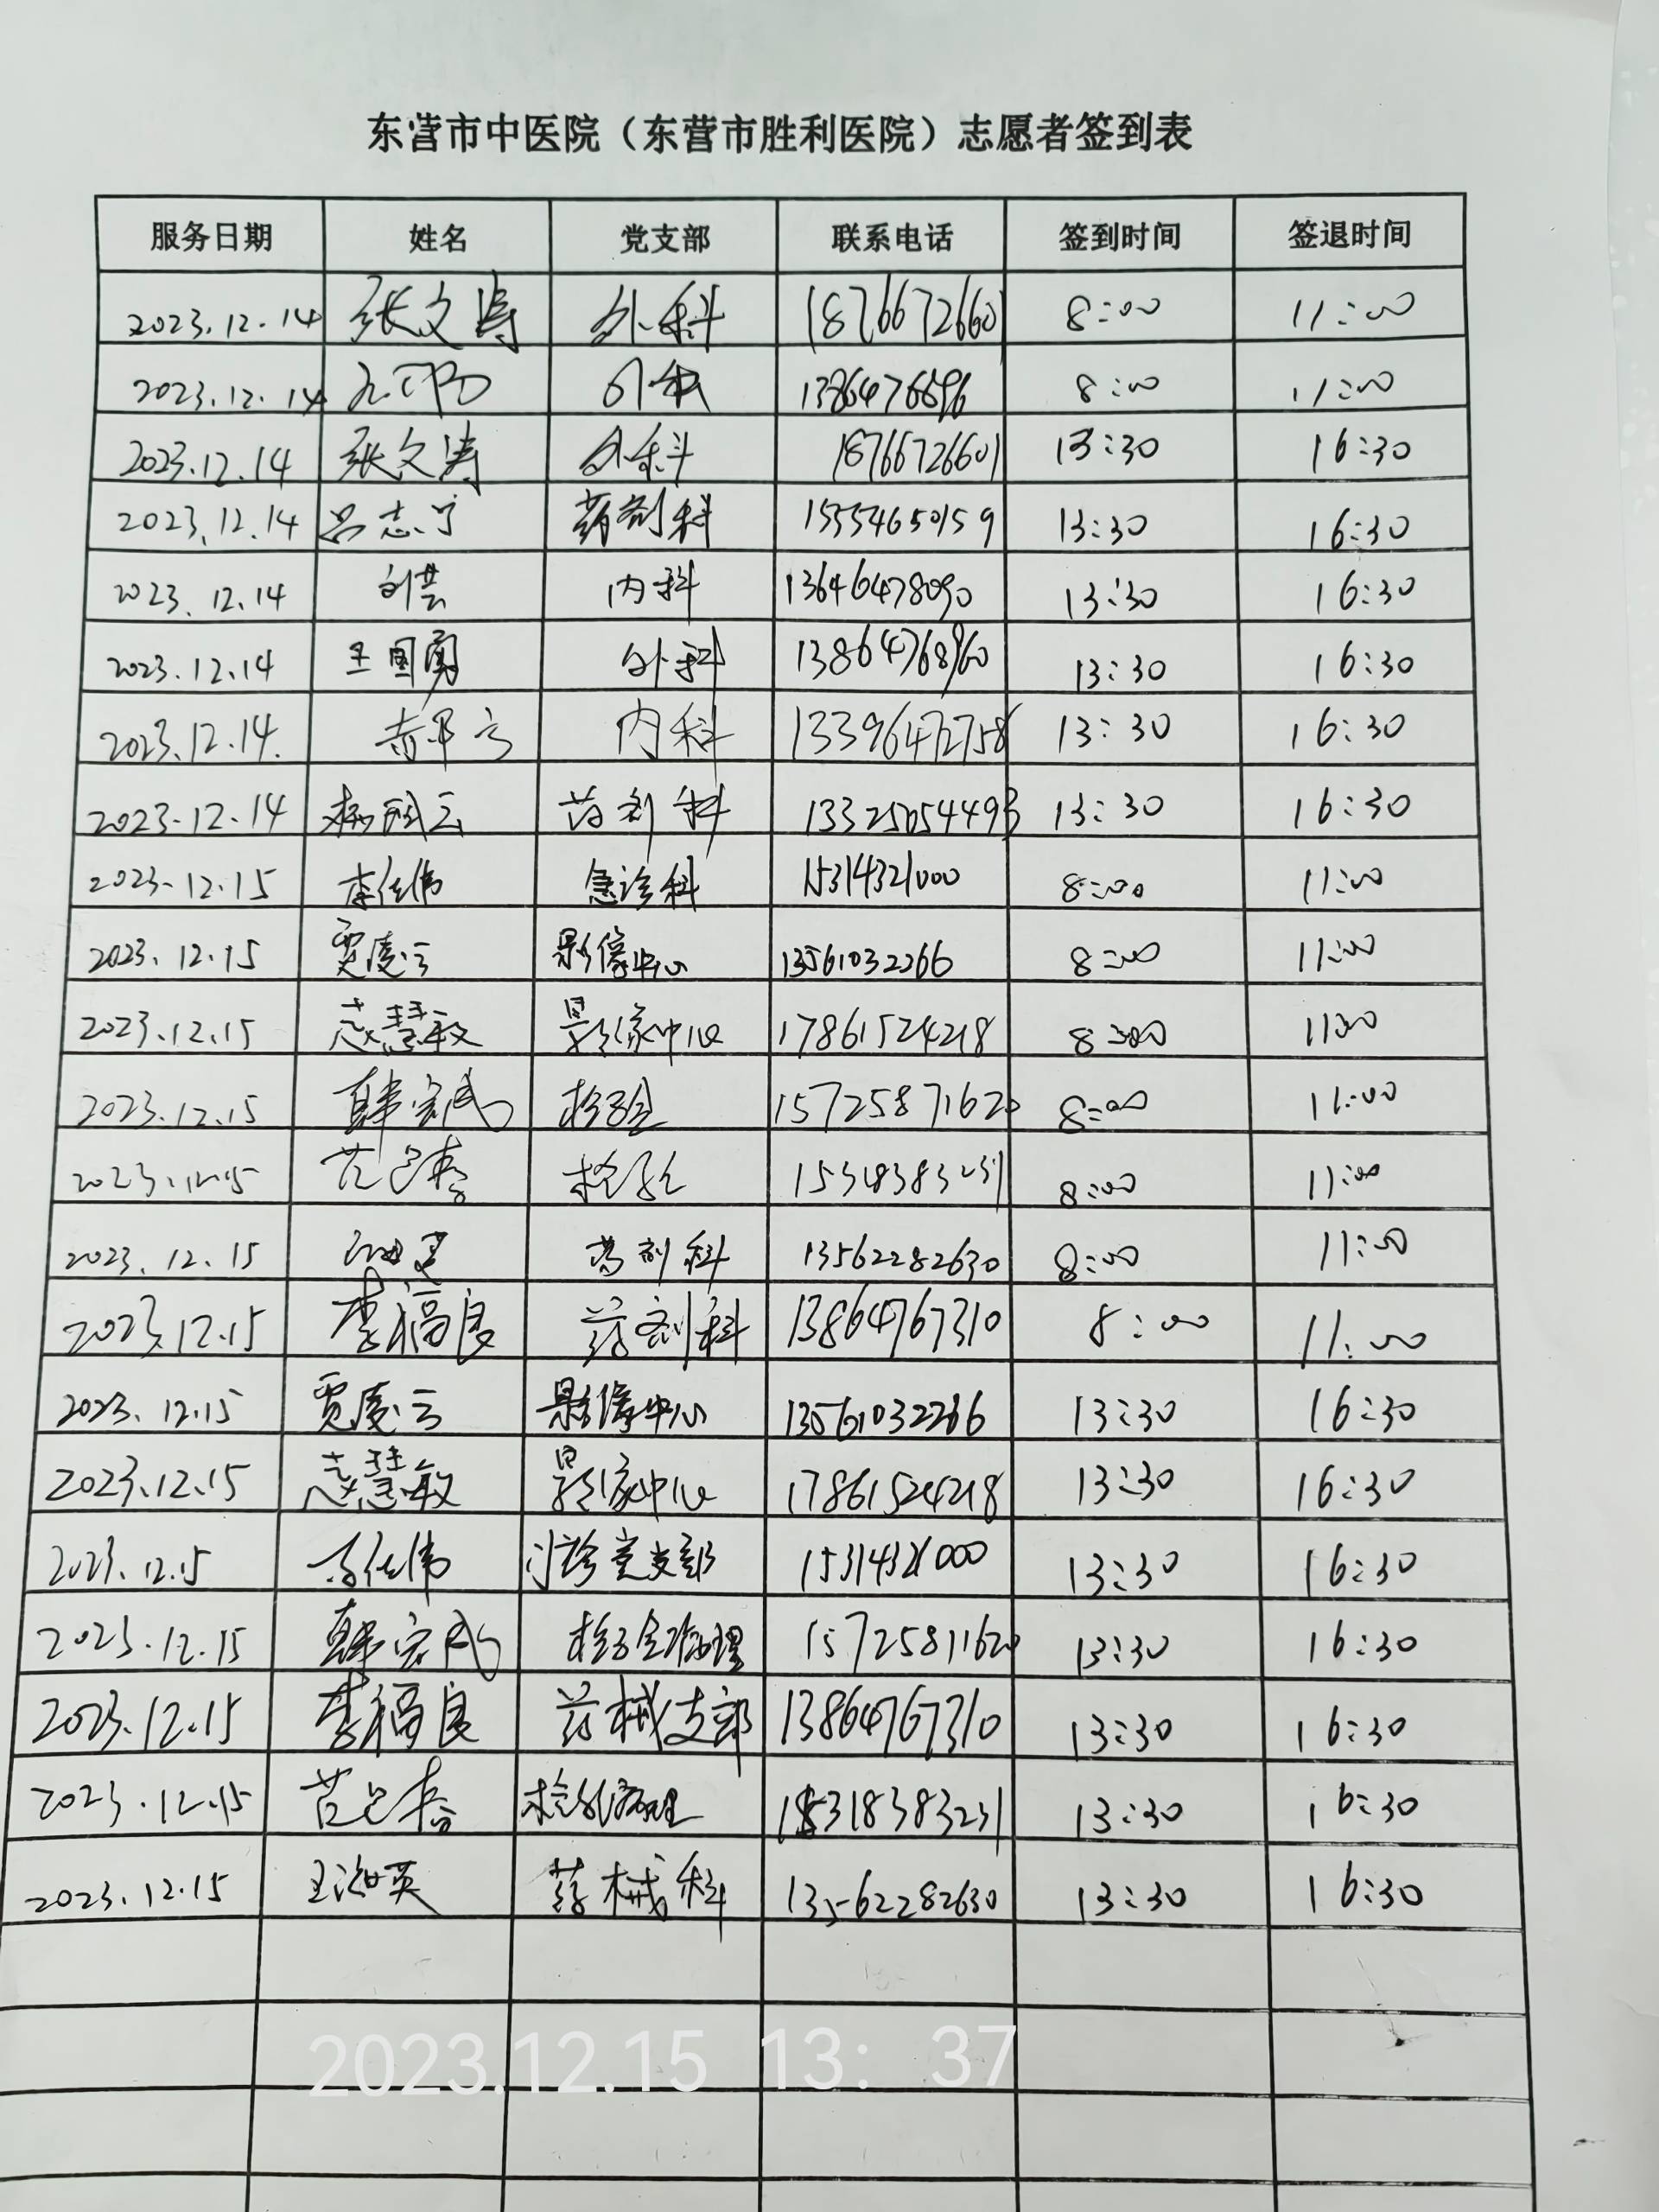 东营市中医院（东营市胜利医院）志愿者签到表
服务日期 姓名 党支部 联系电话 签到时间 签退时间
2023.12.14 张文涛 外科 18766726601 8:00 11:00
2023.12.14 外科 8:00 11:00
2023.12.14 张文涛 外科 18766726601 13:30 16:30
2023.12.14 吕志宁 药剂科 15554650159 13:30 16:30
2023.12.14 刘芸 内科 13646478090 13:30 16:30
2023.12.14 王国勇 外科 13864768960 13:30 16:30
2023.12.14. 内科 13396472758 13:30 16:30
2023.12.14 药剂科 13325054493 13:30 16:30
2023.12.15 李任伟 急诊科 15314321000 8:00 11:00
2023.12.15 贾凌云 影像中心 13561032266 8:00 11:00
2023.12.15 慧敏 影像中心 17861524218 8:00 11:00
2023.12.15 韩宏成 检验 15725871620 8:00 11:00
2023.12.15 检验 15318383231 8:00 11:00
2023.12.15 药剂科 13562282630 8:00 11:00
2023.12.15 李福良 药剂科 13864767310 8:00 11:00
2023.12.15 贾凌云 影像中心 13561032266 13:30 16:30
2023.12.15 慧敏 影像中心 17861524218 13:30 16:30
2023.12.15 李任伟 门诊党支部 15314321000 13:30 16:30
2023.12.15 韩宏成 检验病理 15725871620 13:30 16:30
2023.12.15 李福良 药械支部 13864767310 13:30 16:30
2023.12.15 检验病理 15318383231 13:30 16:30
2023.12.15 王海英 药械科 13562282630 13:30 16:30
2023.12.15 13：37